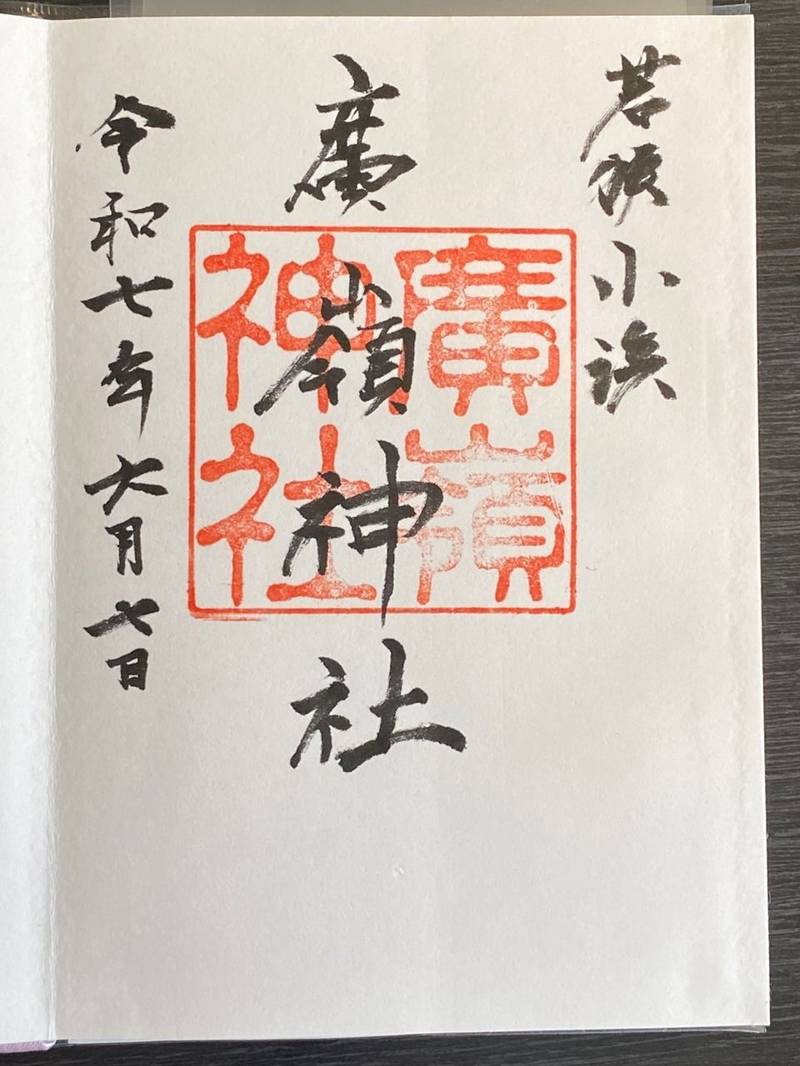 若狭小浜
廣嶺神社
廣嶺
神社
令和七年六月七日